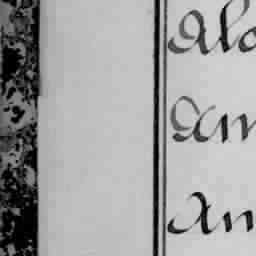 Alo
Am
An